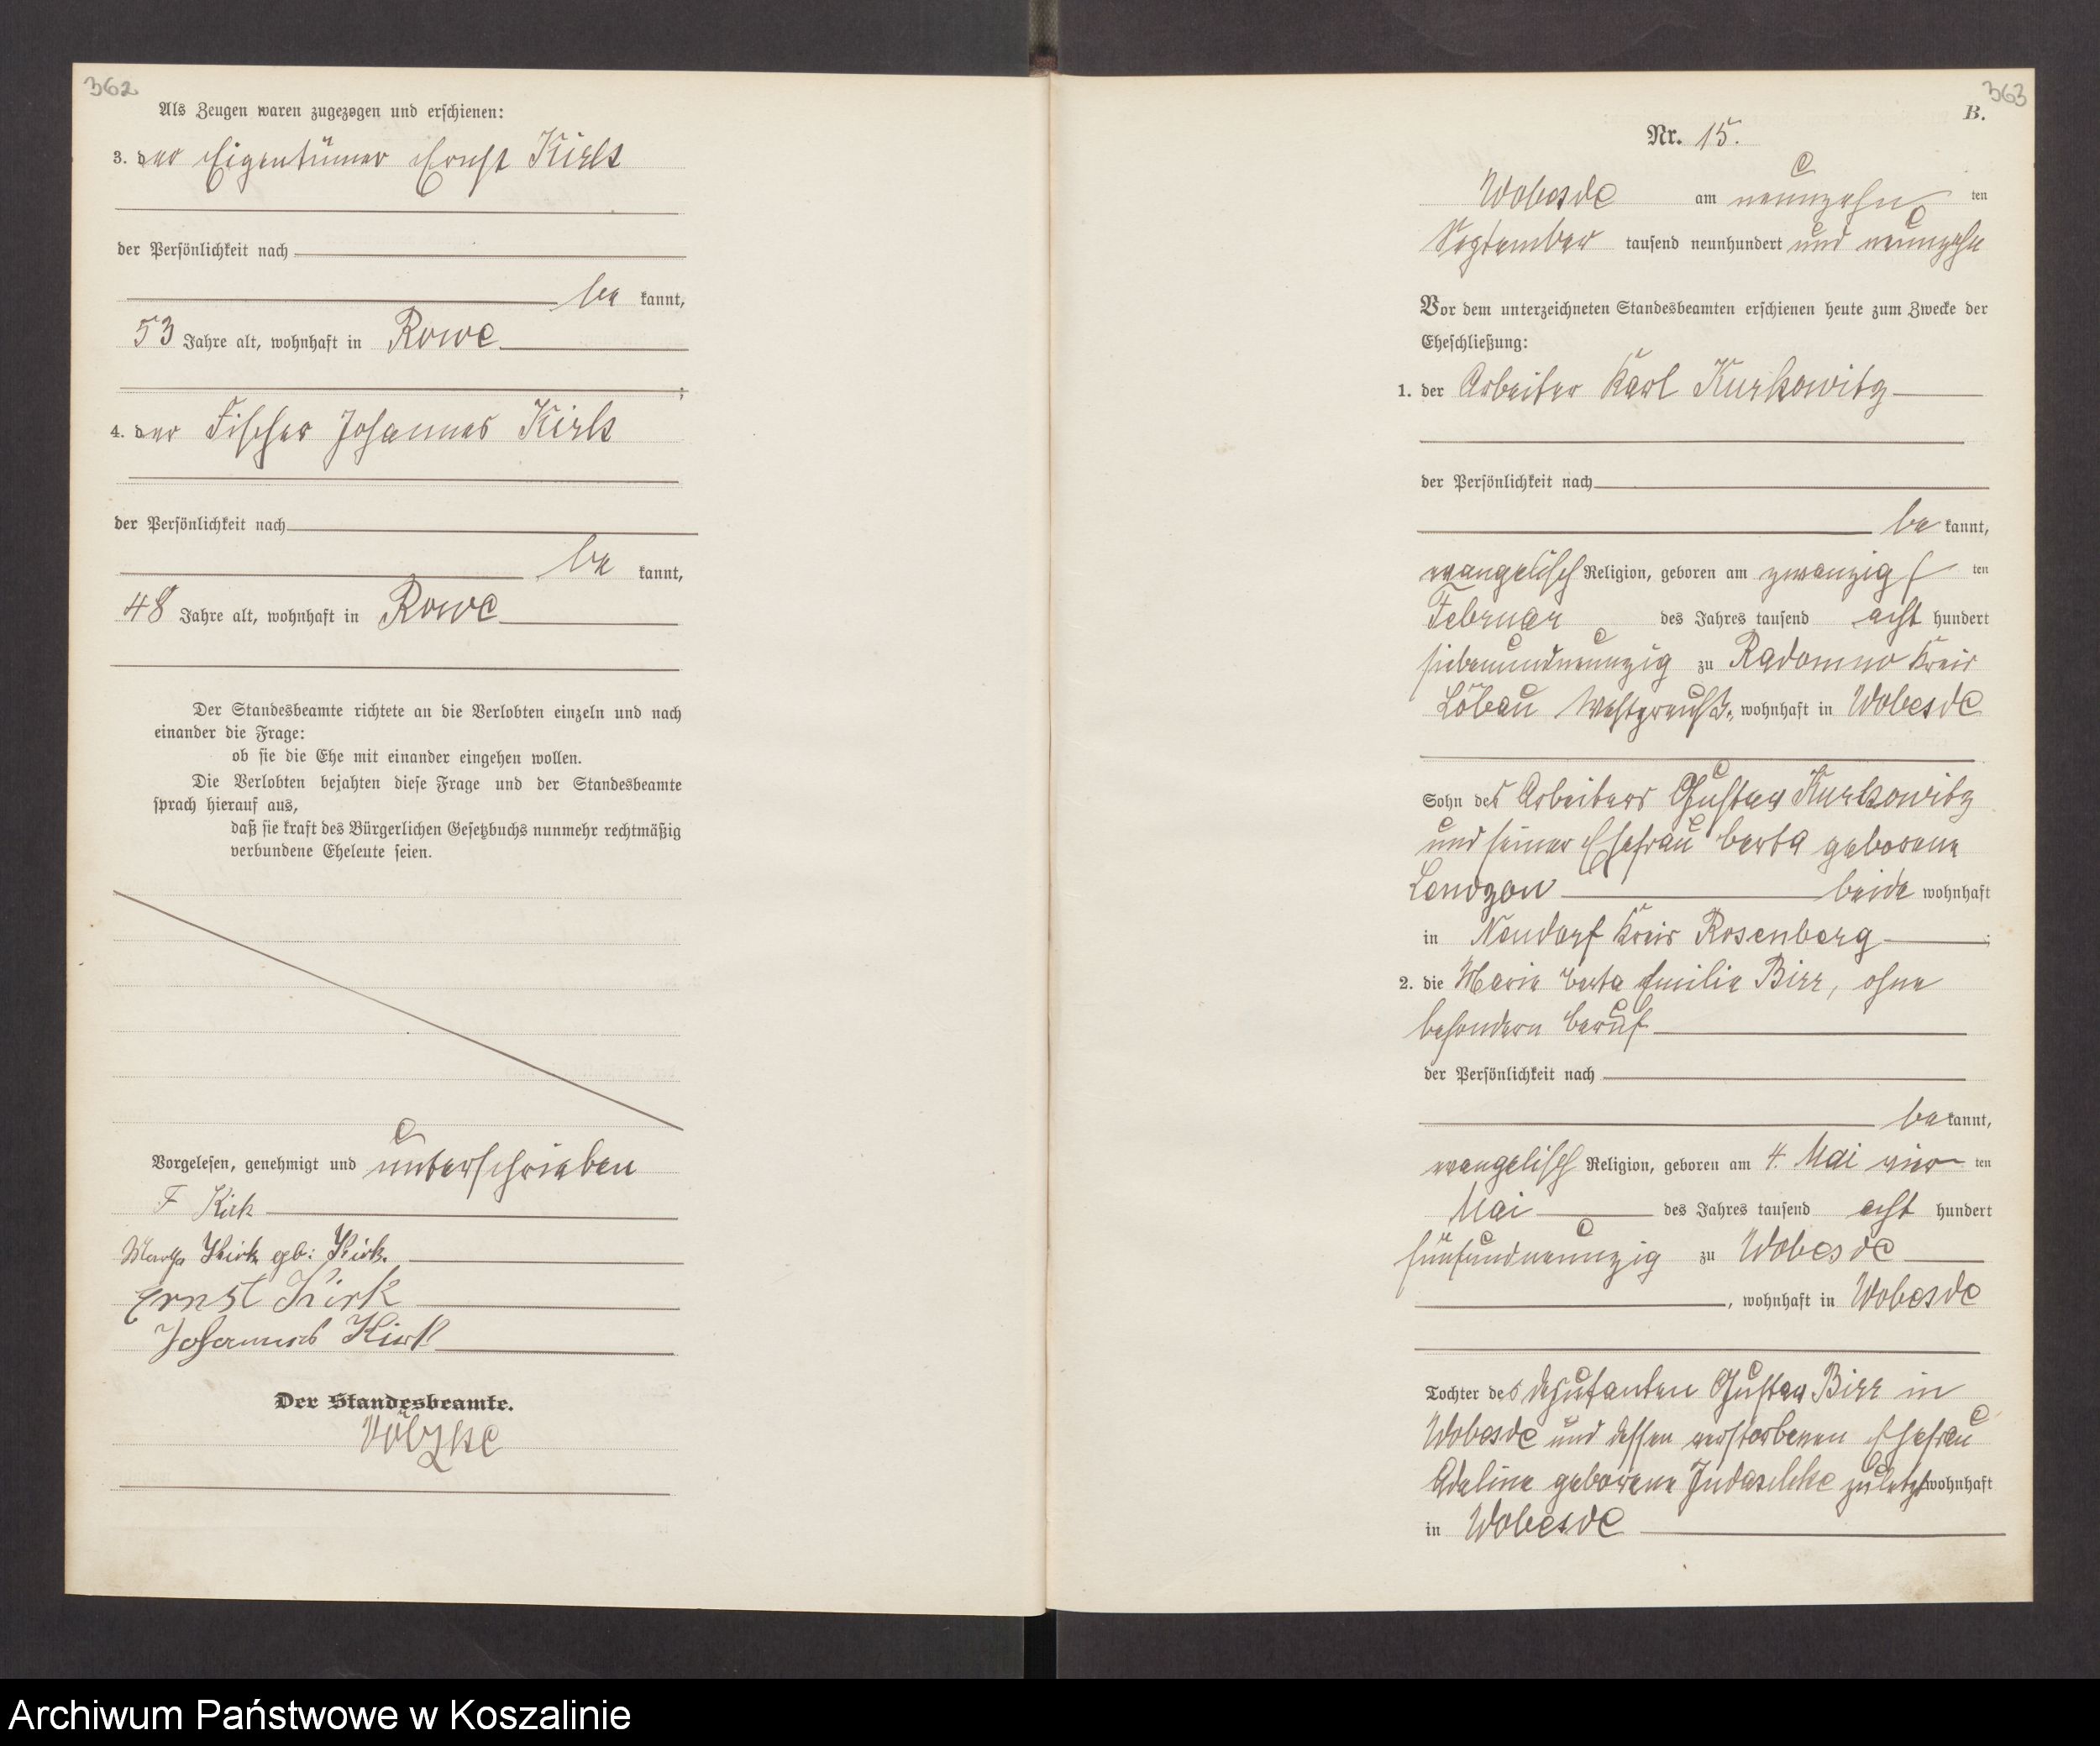 362
Als Zeugen waren zugezogen und erschienen:
3. der Eigentümer Ernst Kirk
der Persönlichkeit nach
be kannt,
53 Jahre alt, wohnhaft in Rowe
;
4. der Fischer Johannes Kirk
der Persönlichkeit nach
be kannt,
48 Jahre alt, wohnhaft in Rowe
Der Standesbeamte richtete an die Verlobten einzeln und nach
einander die Frage:
ob sie die Ehe mit einander eingehen wollen.
Die Verlobten bejahten diese Frage und der Standesbeamte
sprach hierauf aus,
daß sie kraft des Bürgerlichen Gesetzbuchs nunmehr rechtmäßig
verbundene Eheleute seien.
Vorgelesen, genehmigt und unterschrieben
F Kirk
Martha Kirk geb: Kirk.
Ernst Kirk
Johannes Kirk
Der Standesbeamte.
363
B.
Nr. 15.
Wobesde am neunzehn ten
September tausend neunhundert und neunzehn
Vor dem unterzeichneten Standesbeamten erschienen heute zum Zwecke der
Eheschließung:
1. der Arbeiter Karl Kurkowitz
der Persönlichkeit nach
be kannt,
evangelisch Religion, geboren am zwanzigs ten
Februar des Jahres tausend acht hundert
siebenundneunzig zu Radomno Kreis
Löbau Westpreuß., wohnhaft in Wobesde
Sohn des Arbeiters Gustav Kurkowitz
und seiner Ehefrau Berta geborene
beide wohnhaft
in Neudorf Kreis Rosenberg ;
2. die Marie Berta Emilie Birr, ohne
besondern Beruf
der Persönlichkeit nach
be kannt,
evangelisch Religion, geboren am 4. Mai vier ten
Mai des Jahres tausend acht hundert
fünfundneunzig zu Wobesde
, wohnhaft in Wobesde
Tochter des Deputanten Gustav Birr in
Wobesde und dessen verstorbenen Ehefrau
Adeline geborene Judaschke zuletzt wohnhaft
in Wobesde
Archiwum Państwowe w Koszalinie